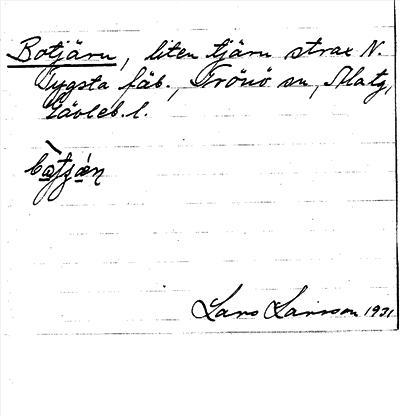 Botjärn, liten tjärn strax N.
Tygsta fäb., Trönö sn, Matg,
Gävleb. l.
Lars Larsson 1931